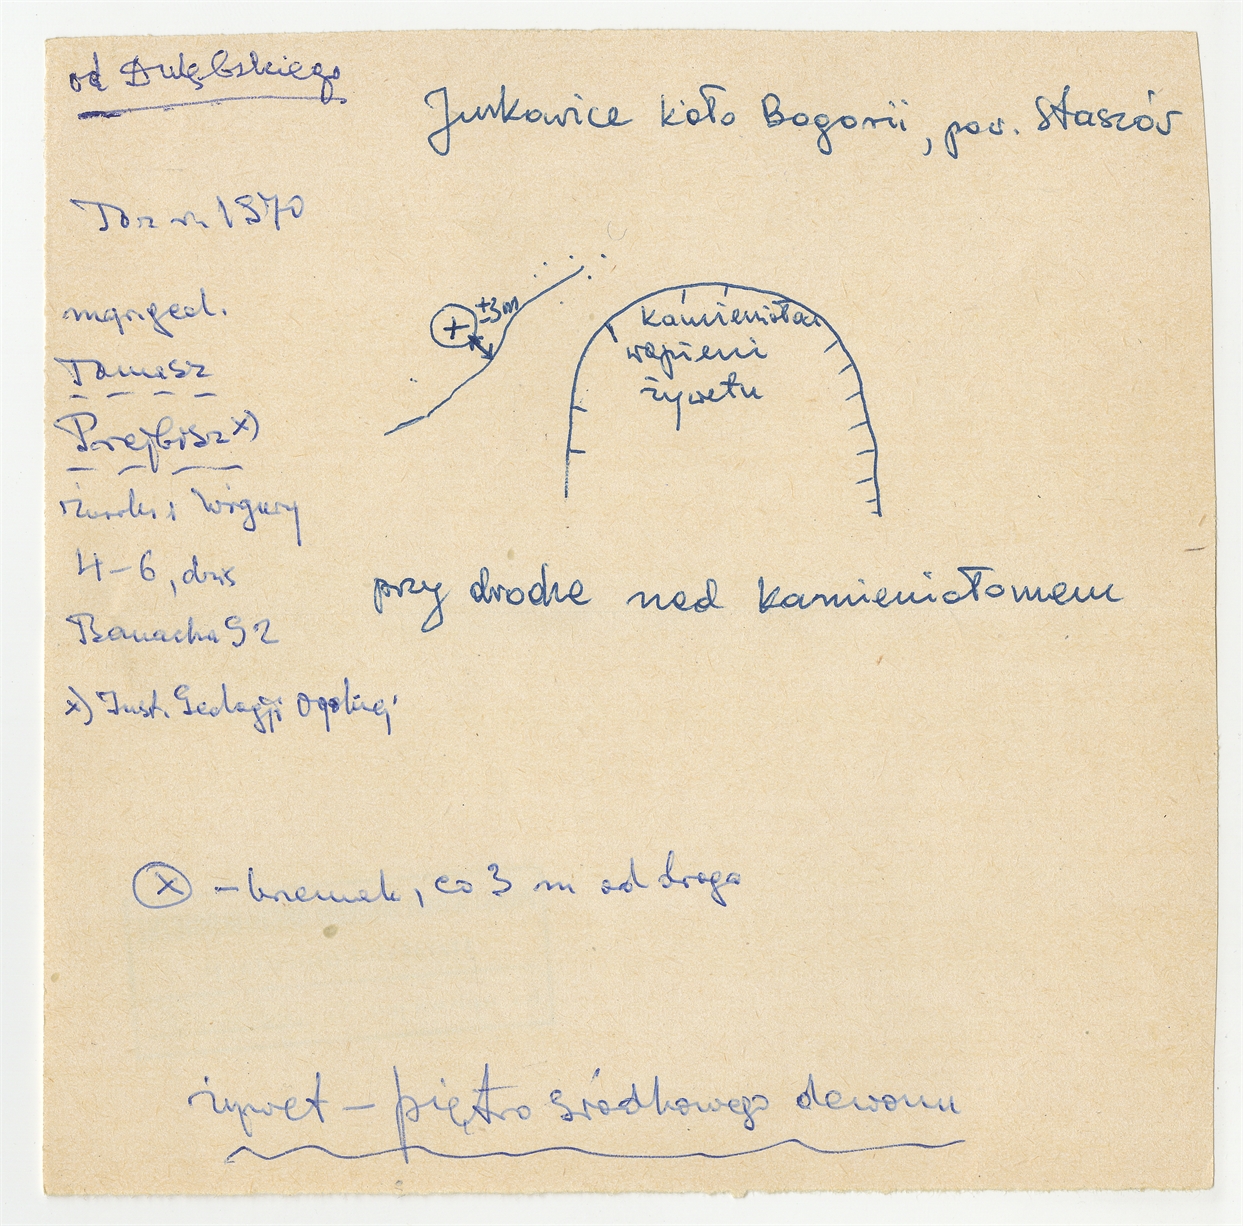 od Dulębskiego
Jurkowice koło Bogorii, pow. Staszów
1970
mgr geol.
Tomasz
Przejbisz x)
Żwirki i Wigury
4-6, dziś
Banacha 92
x) Inst. Geologii Ogólnej
+
±3m
kamieniołom
wapieni
żywetu
przy drodze nad kamieniołomem
x – krzemień, co 3 m od drogi
żywet – piętro środkowego dewonu